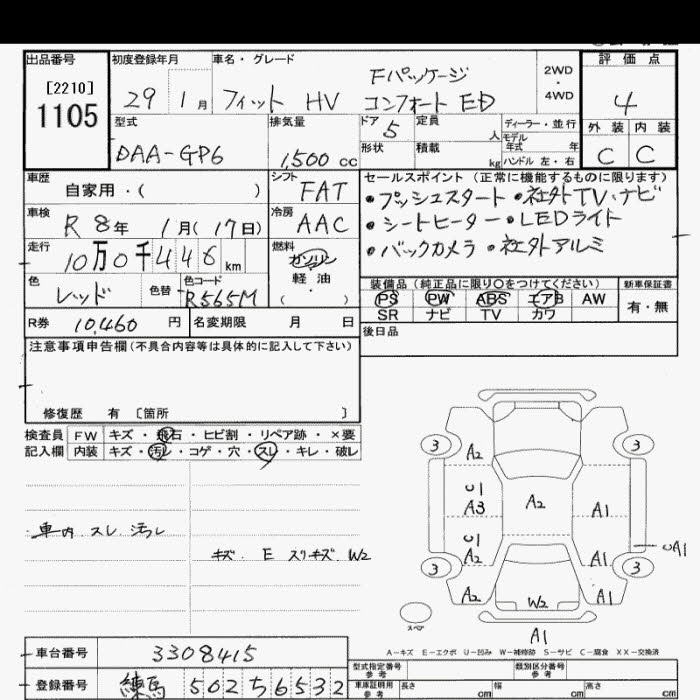 出品番号
[2210]
1105
初度登録年月
29 1月
車名・グレード
フィット HV Fパッケージ
コンフォートED
2WD
・
4WD
評価点
4
外装 内装
C C
型式
DAA-GP6
排気量
1,500 cc
ドア 5
形状
定員 人
積載 kg
ディーラー・並行
モデル
年式 年
ハンドル 左・右
車歴
自家用・( )
シフト
FAT
車検
R 8年 1月(17日)
冷房
AAC
走行
10万0千446km
燃料
ガソリン
軽油
( ・ )
色
レッド
色替
色コード
R565M
R券 10,460 円
名変期限 月 日
セールスポイント(正常に機能するものに限ります)
・プッシュスタート ・社外TV、ナビ
・シートヒーター ・LEDライト
・バックカメラ ・社外アルミ
装備品(純正品に限り○をつけてください)
PS PW ABS エアB AW
SR ナビ TV カワ
新車保証書
有・無
後日品
注意事項申告欄(不具合内容等は具体的に記入して下さい)
修復歴 有 〔箇所 〕
検査員
記入欄
FW キズ・飛石・ヒビ割・リペア跡・×要
内装 キズ・汚レ・コゲ・穴・スレ・キレ・破レ
車内 スレ 汚レ
キズ. E スリキズ. W2
3 3
A2
U1
A3 A2 A1
U1
A2 A1 UA1
3 3
A2 W2 A1
スペア
A1
A-キズ E-エクボ U-凹み W-補修跡 S-サビ C-腐食 XX-交換済
車台番号 3308415
登録番号 練馬 502ち6532
型式指定番号
参考
類別区分番号
参考
車庫証明用
参考
長さ cm 幅 cm 高さ cm